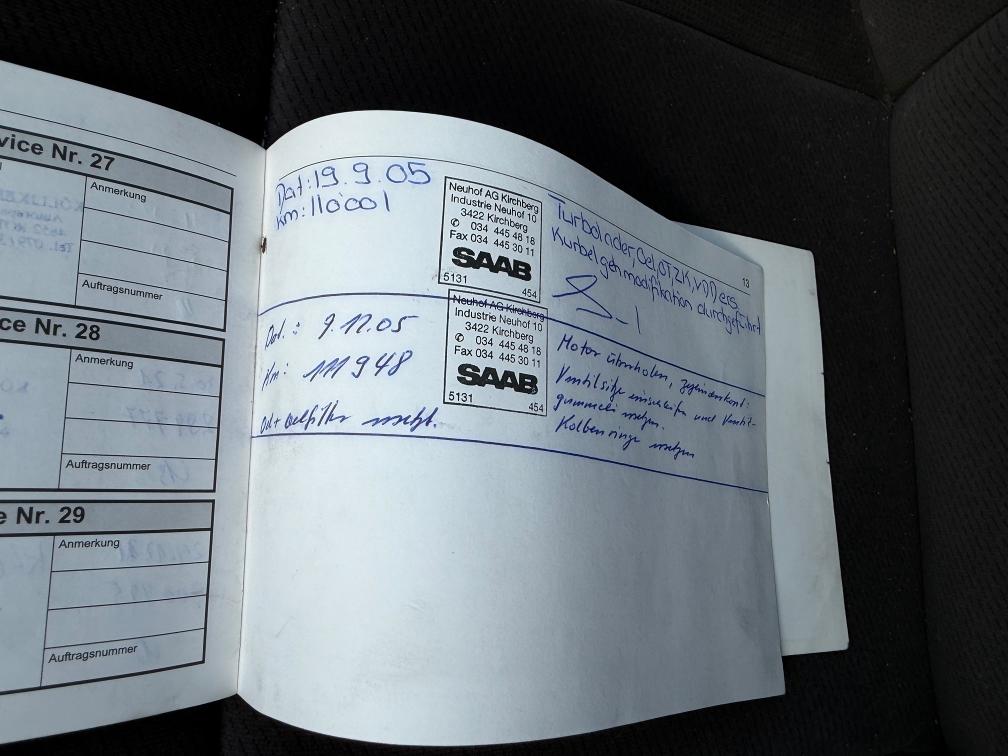 vice Nr. 27
Anmerkung
Auftragsnummer
ce Nr. 28
Anmerkung
Auftragsnummer
e Nr. 29
Anmerkung
Auftragsnummer
13
Dat: 19.9.05
Km: 110'001
Neuhof AG Kirchberg
Industrie Neuhof 10
3422 Kirchberg
✆ 034 445 48 18
Fax 034 445 30 11
SAAB
5131 454
Turbolader, Oel, OT, ZK,
Kurbelgeh modifikation durchgeführt
Dat.: 9.11.05
Km: 111948
Oel + Oelfilter ersetzt.
Neuhof AG Kirchberg
Industrie Neuhof 10
3422 Kirchberg
✆ 034 445 48 18
Fax 034 445 30 11
SAAB
5131 454
Motor überholen,
Ventilsitze einschleifen und Ventil-
gummeli ersetzen.
Kolbenringe ersetzen